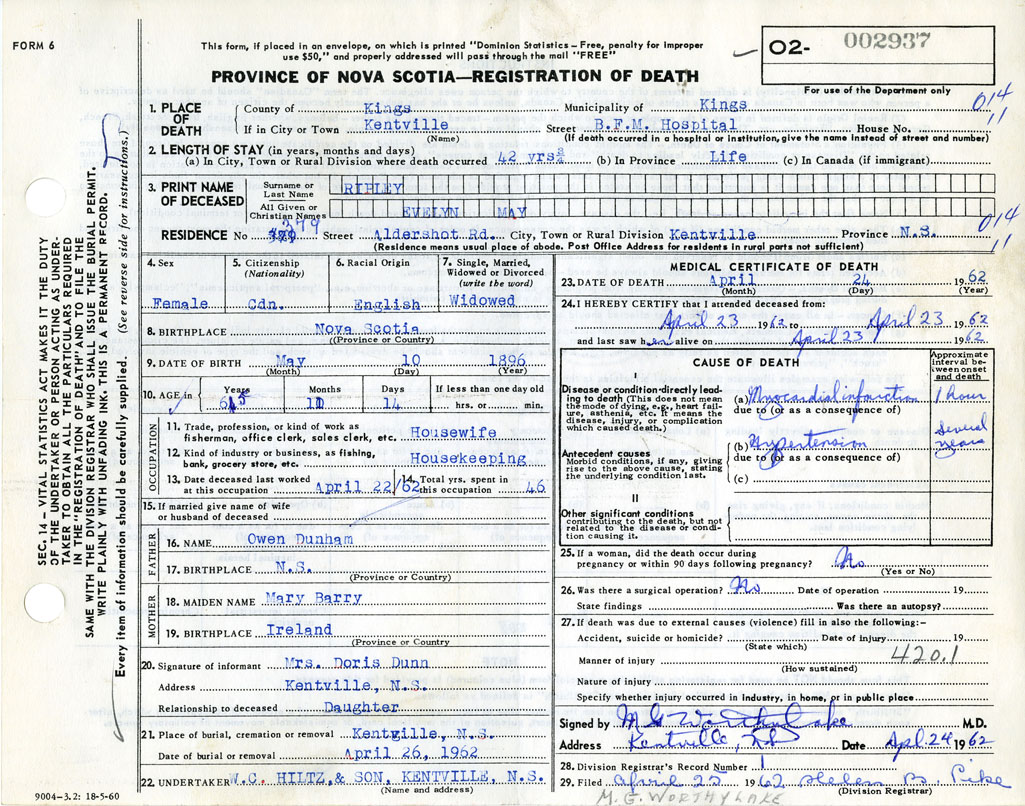 FORM 6
This form, if placed in an envelope, on which is printed "Dominion Statistics – Free, penalty for improper
use $50," and properly addressed will pass through the mail "FREE"
PROVINCE OF NOVA SCOTIA—REGISTRATION OF DEATH
O2- 002937
For use of the Department only
014
11
1. PLACE OF DEATH
County of Kings Municipality of Kings
If in City or Town Kentville Street B.F.M. Hospital House No.
(Name) (If death occurred in a hospital or institution, give the name instead of street and number)
2. LENGTH OF STAY (in years, months and days)
(a) In City, Town or Rural Division where death occurred 42 yrs (b) In Province Life (c) In Canada (if immigrant)
3. PRINT NAME OF DECEASED
Surname or Last Name RIPLEY
All Given or Christian Names EVELYN MAY
RESIDENCE No 379 Street Aldershot Rd. City, Town or Rural Division Kentville Province N.S.
(Residence means usual place of abode. Post Office Address for residents in rural parts not sufficient)
014
11
4. Sex Female
5. Citizenship (Nationality) Cdn.
6. Racial Origin English
7. Single, Married, Widowed or Divorced (write the word) Widowed
8. BIRTHPLACE Nova Scotia
((Province or Country)
9. DATE OF BIRTH May 10 1896
(Month) (Day) (Year)
10. AGE in Years 65 Months 11 Days 14 If less than one day old hrs. or min.
OCCUPATION
11. Trade, profession, or kind of work as fisherman, office clerk, sales clerk, etc. Housewife
12. Kind of industry or business, as fishing, bank, grocery store, etc. Housekeeping
13. Date deceased last worked at this occupation April 22/62
14. Total yrs. spent in this occupation 46
15. If married give name of wife or husband of deceased
FATHER
16. NAME Owen Dunham
17. BIRTHPLACE N.S.
(Province or Country)
MOTHER
18. MAIDEN NAME Mary Barry
19. BIRTHPLACE Ireland
(Province or Country
20. Signature of informant Mrs. Doris Dunn
Address Kentville, N.S.
Relationship to deceased Daughter
21. Place of burial, cremation or removal Kentgille, N.S.
Date of burial or removal April 26, 1962
22. UNDERTAKER W.C. HILTZ,& SON, KENTVILLE, N.S.
(Name and address)
9004-3.2: 18-5-60
MEDICAL CERTIFICATE OF DEATH
23. DATE OF DEATH April 24 1962
(Month) (Day) (Year)
24. I HEREBY CERTIFY that I attended deceased from:
April 23 1962 to April 23 1962
and last saw her alive on April 23 1962
CAUSE OF DEATH
Approximate interval between onset and death
I
Disease or condition directly leading to death (This does not mean the mode of dying, e.g., heart failure, asthenia, etc. It means the disease, injury, or complication which caused death.)
(a) Myocardial infarction 1 hour
due to (or as a consequence of)
Antecedent causes
Morbid conditions, if any, giving rise to the above cause, stating the underlying condition last.
(b) Hypertension several years
due to (or as a consequence of)
(c)
II
Other significant conditions
contributing to the death, but not related to the disease or condition causing it.
25. If a woman, did the death occur during pregnancy or within 90 days following pregnancy? No
(Yes or No)
26. Was there a surgical operation? No Date of operation 19
State findings Was there an autopsy?
27. If death was due to external causes (violence) fill in also the following:-
Accident, suicide or homicide? Date of injury 19
(State which)
Manner of injury 420.1
(How sustained)
Nature of injury
Specify whether injury occurred in industry, in home, or in public place
Signed by M G Worthylake M.D.
Address Kentville, NS Date Apl. 24 1962
28. Division Registrar's Record Number 1
29. Filed April 25 1962 B. Pike
(Division Registrar)
M. G. WORTHYLAKE
SEC. 14 – VITAL STATISTICS ACT MAKES IT THE DUTY
OF THE UNDERTAKER OR PERSON ACTING AS UNDER-
TAKER TO OBTAIN ALL THE PARTICULARS REQUIRED
IN THE "REGISTRATION OF DEATH" AND TO FILE THE
SAME WITH THE DIVISION REGISTRAR WHO SHALL ISSUE THE BURIAL PERMIT.
WRITE PLAINLY WITH UNFADING INK. THIS IS A PERMANENT RECORD.
Every item of information should be carefully supplied. (See reverse side for instructions.)